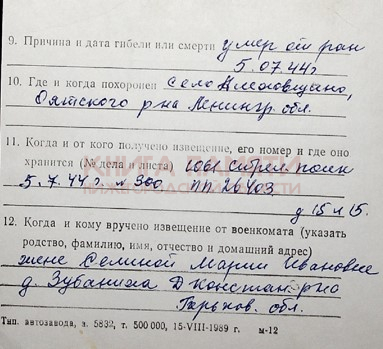 9. Причина и дата гибели или смерти умер от ран
5.07.44г
10. Где и когда похоронен село Алеховщано,
Оятского р-на Ленингр. обл.
11. Когда и от кого получено извещение, его номер и где оно
хранится (№ дела и листа) 1061 стрел. полк
5.7.44 г. № 300 ПП 26403
д 15 л 15.
КНИГА ПАМЯТИ
12. Когда и кому вручено извещение от военкомата (указать
родство, фамилию, имя, отчество и домашний адрес)
жене Селиной Марии Ивановне
д. Зубаниха Д Константин р-на
Горьков. обл.
Тип. автозавода, з. 5832, т. 500 000, 15-VIII-1989 г. м-12